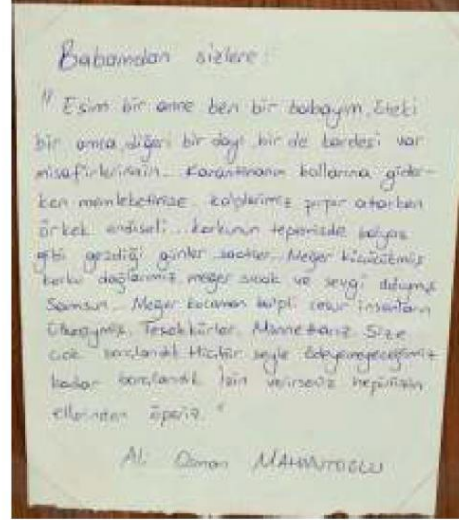 Babamdan sizlere:
" Eşim bir anne ben bir babayım, öteki
bir amca, diğeri bir dayı bir de kardeşi var
misafirlerimizin.. Karantinanın kollarına gider-
ken memleketimize, kalplerimiz pırpır atarken
ürkek endişeli... korkunun tepemizde balyoz
gibi gezdiği günler saatler.. Meğer küçücükmüş
korku dağlarımız meğer sıcak ve sevgi doluymuş
Samsun.. Meğer kocaman kalpli cesur insanların
ülkesiymiş. Teşekkürler. Minnettarız. Size
çok borçlandık Hiçbir şeyle ödeyemeyeceğimiz
kadar borçlandık İzin verirseniz hepinizin
ellerinden öperiz. "
Ali Osman